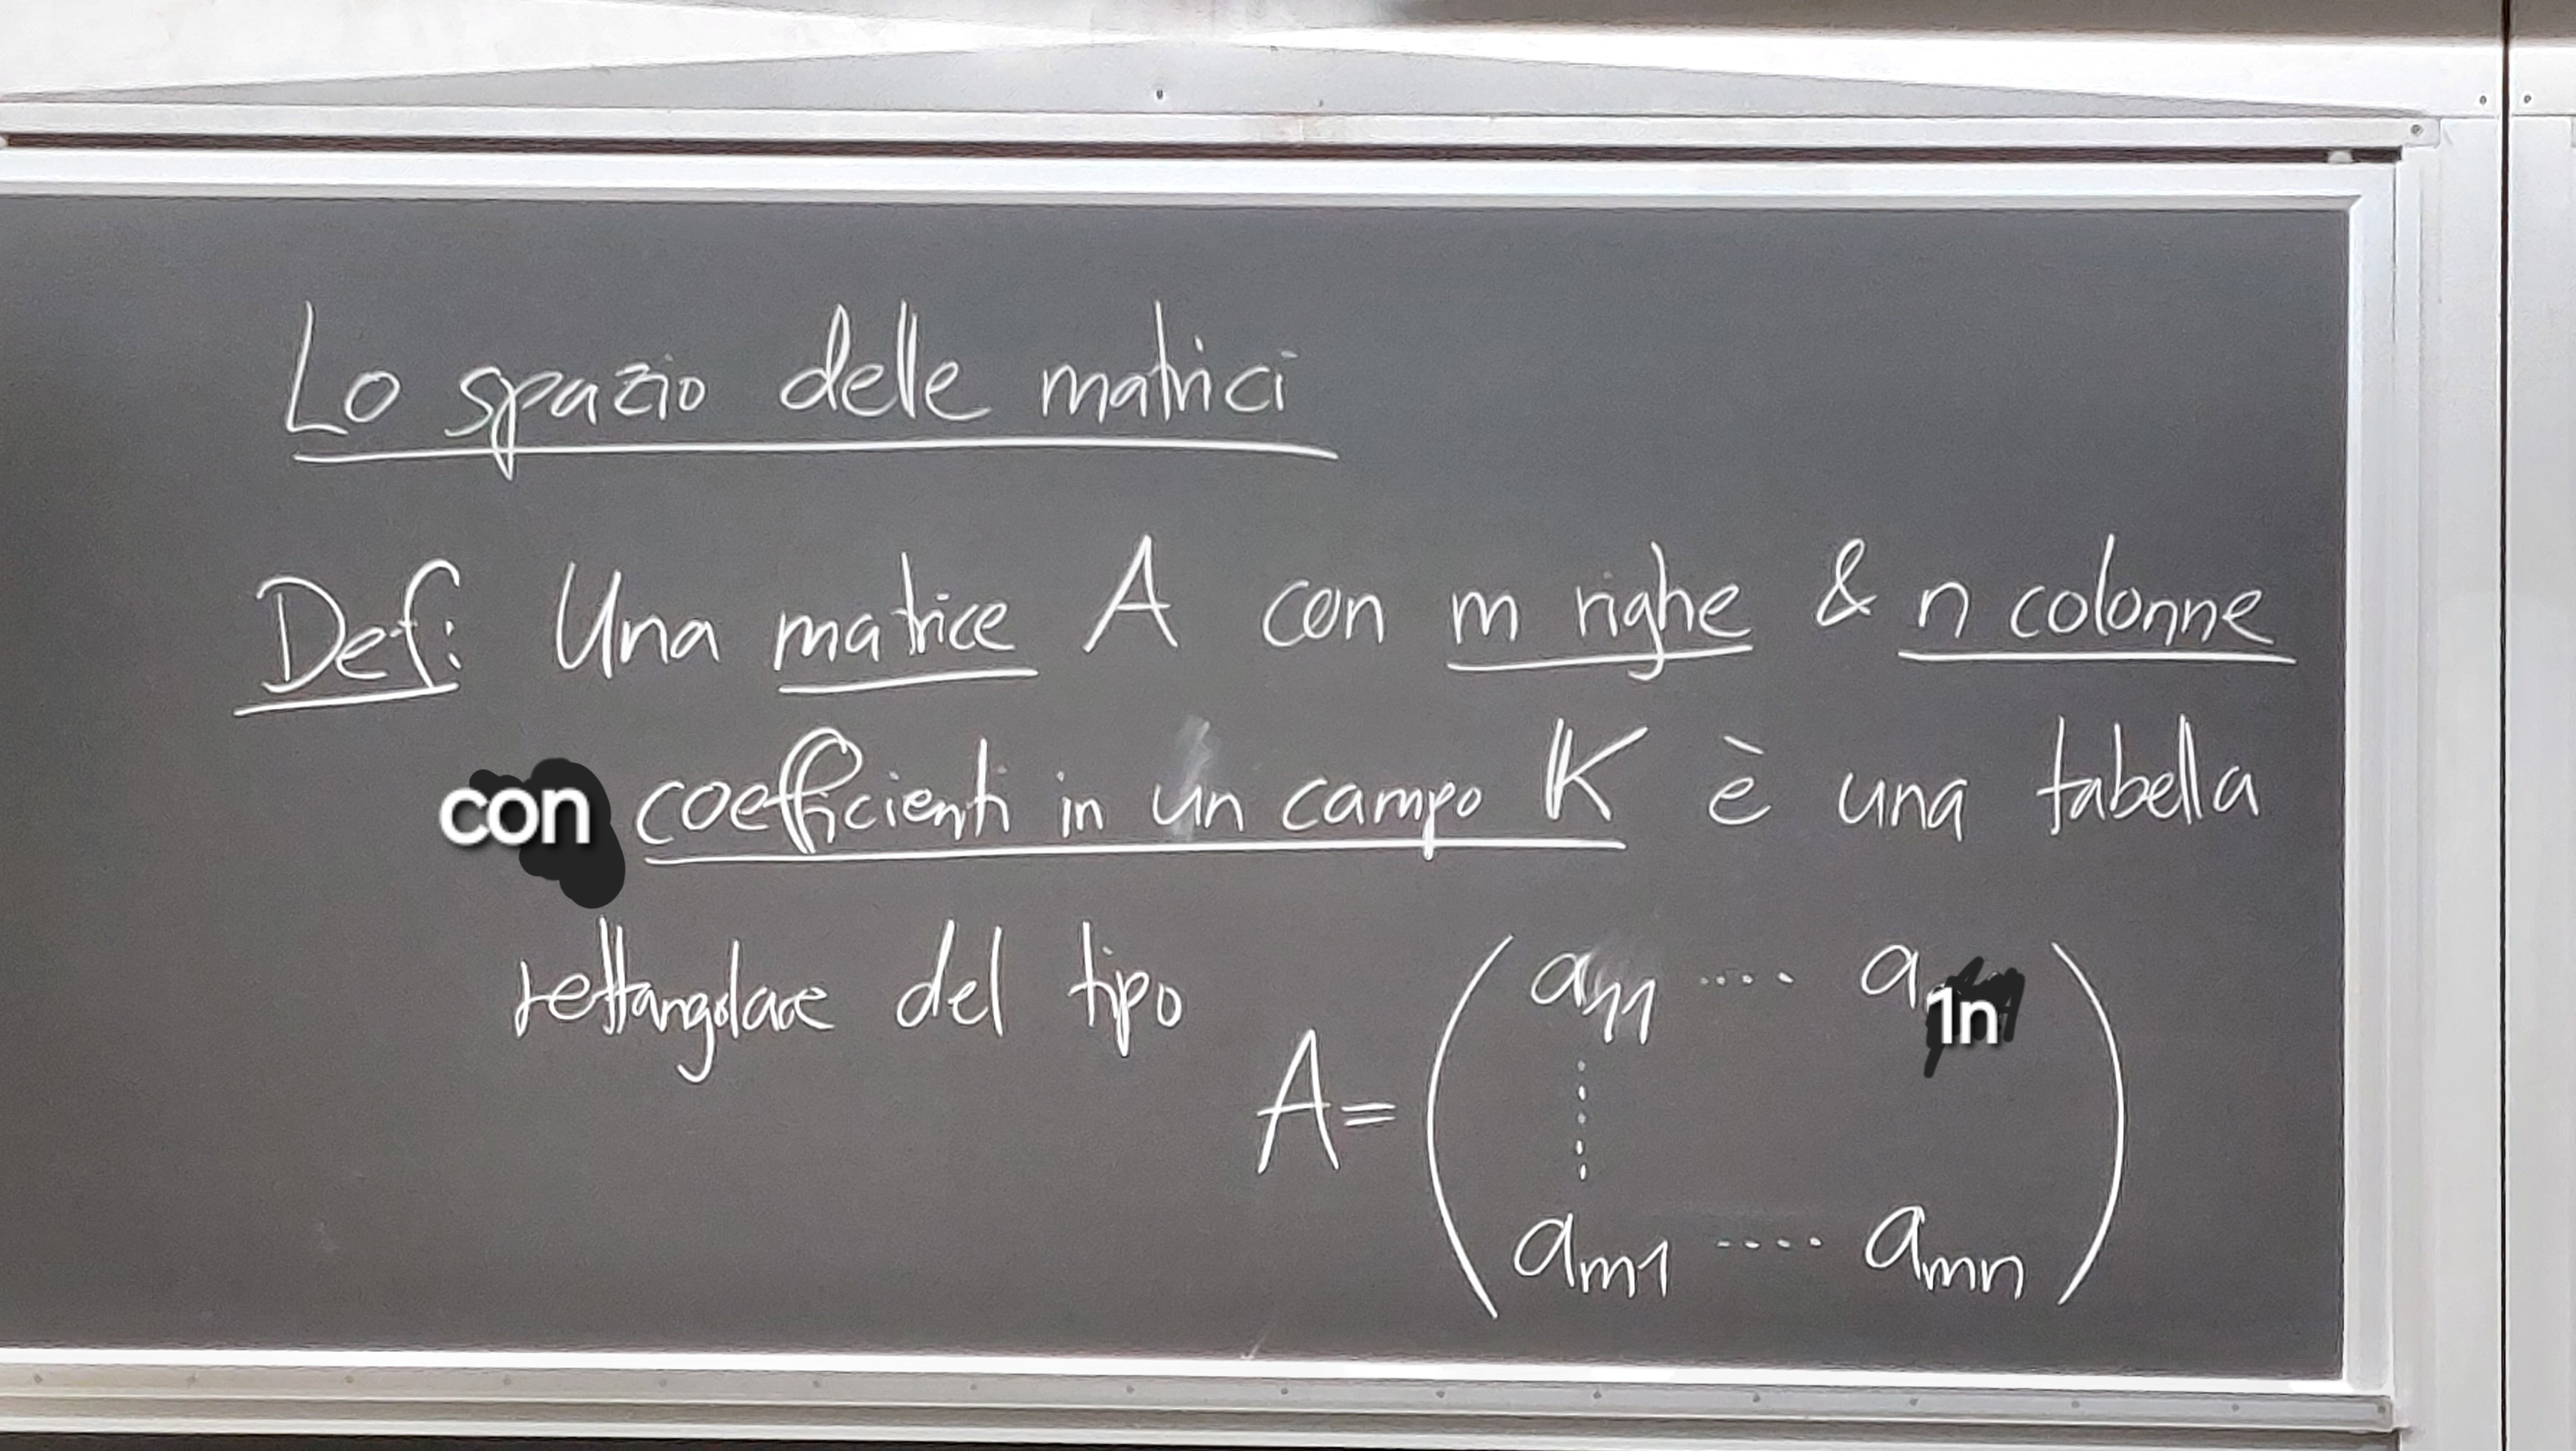 Lo spazio delle matrici
Def: Una matrice A con m righe & n colonne
con coefficienti in un campo K è una tabella
rettangolare del tipo
A = ( a11 .... a1n
⋮
am1 .... amn )